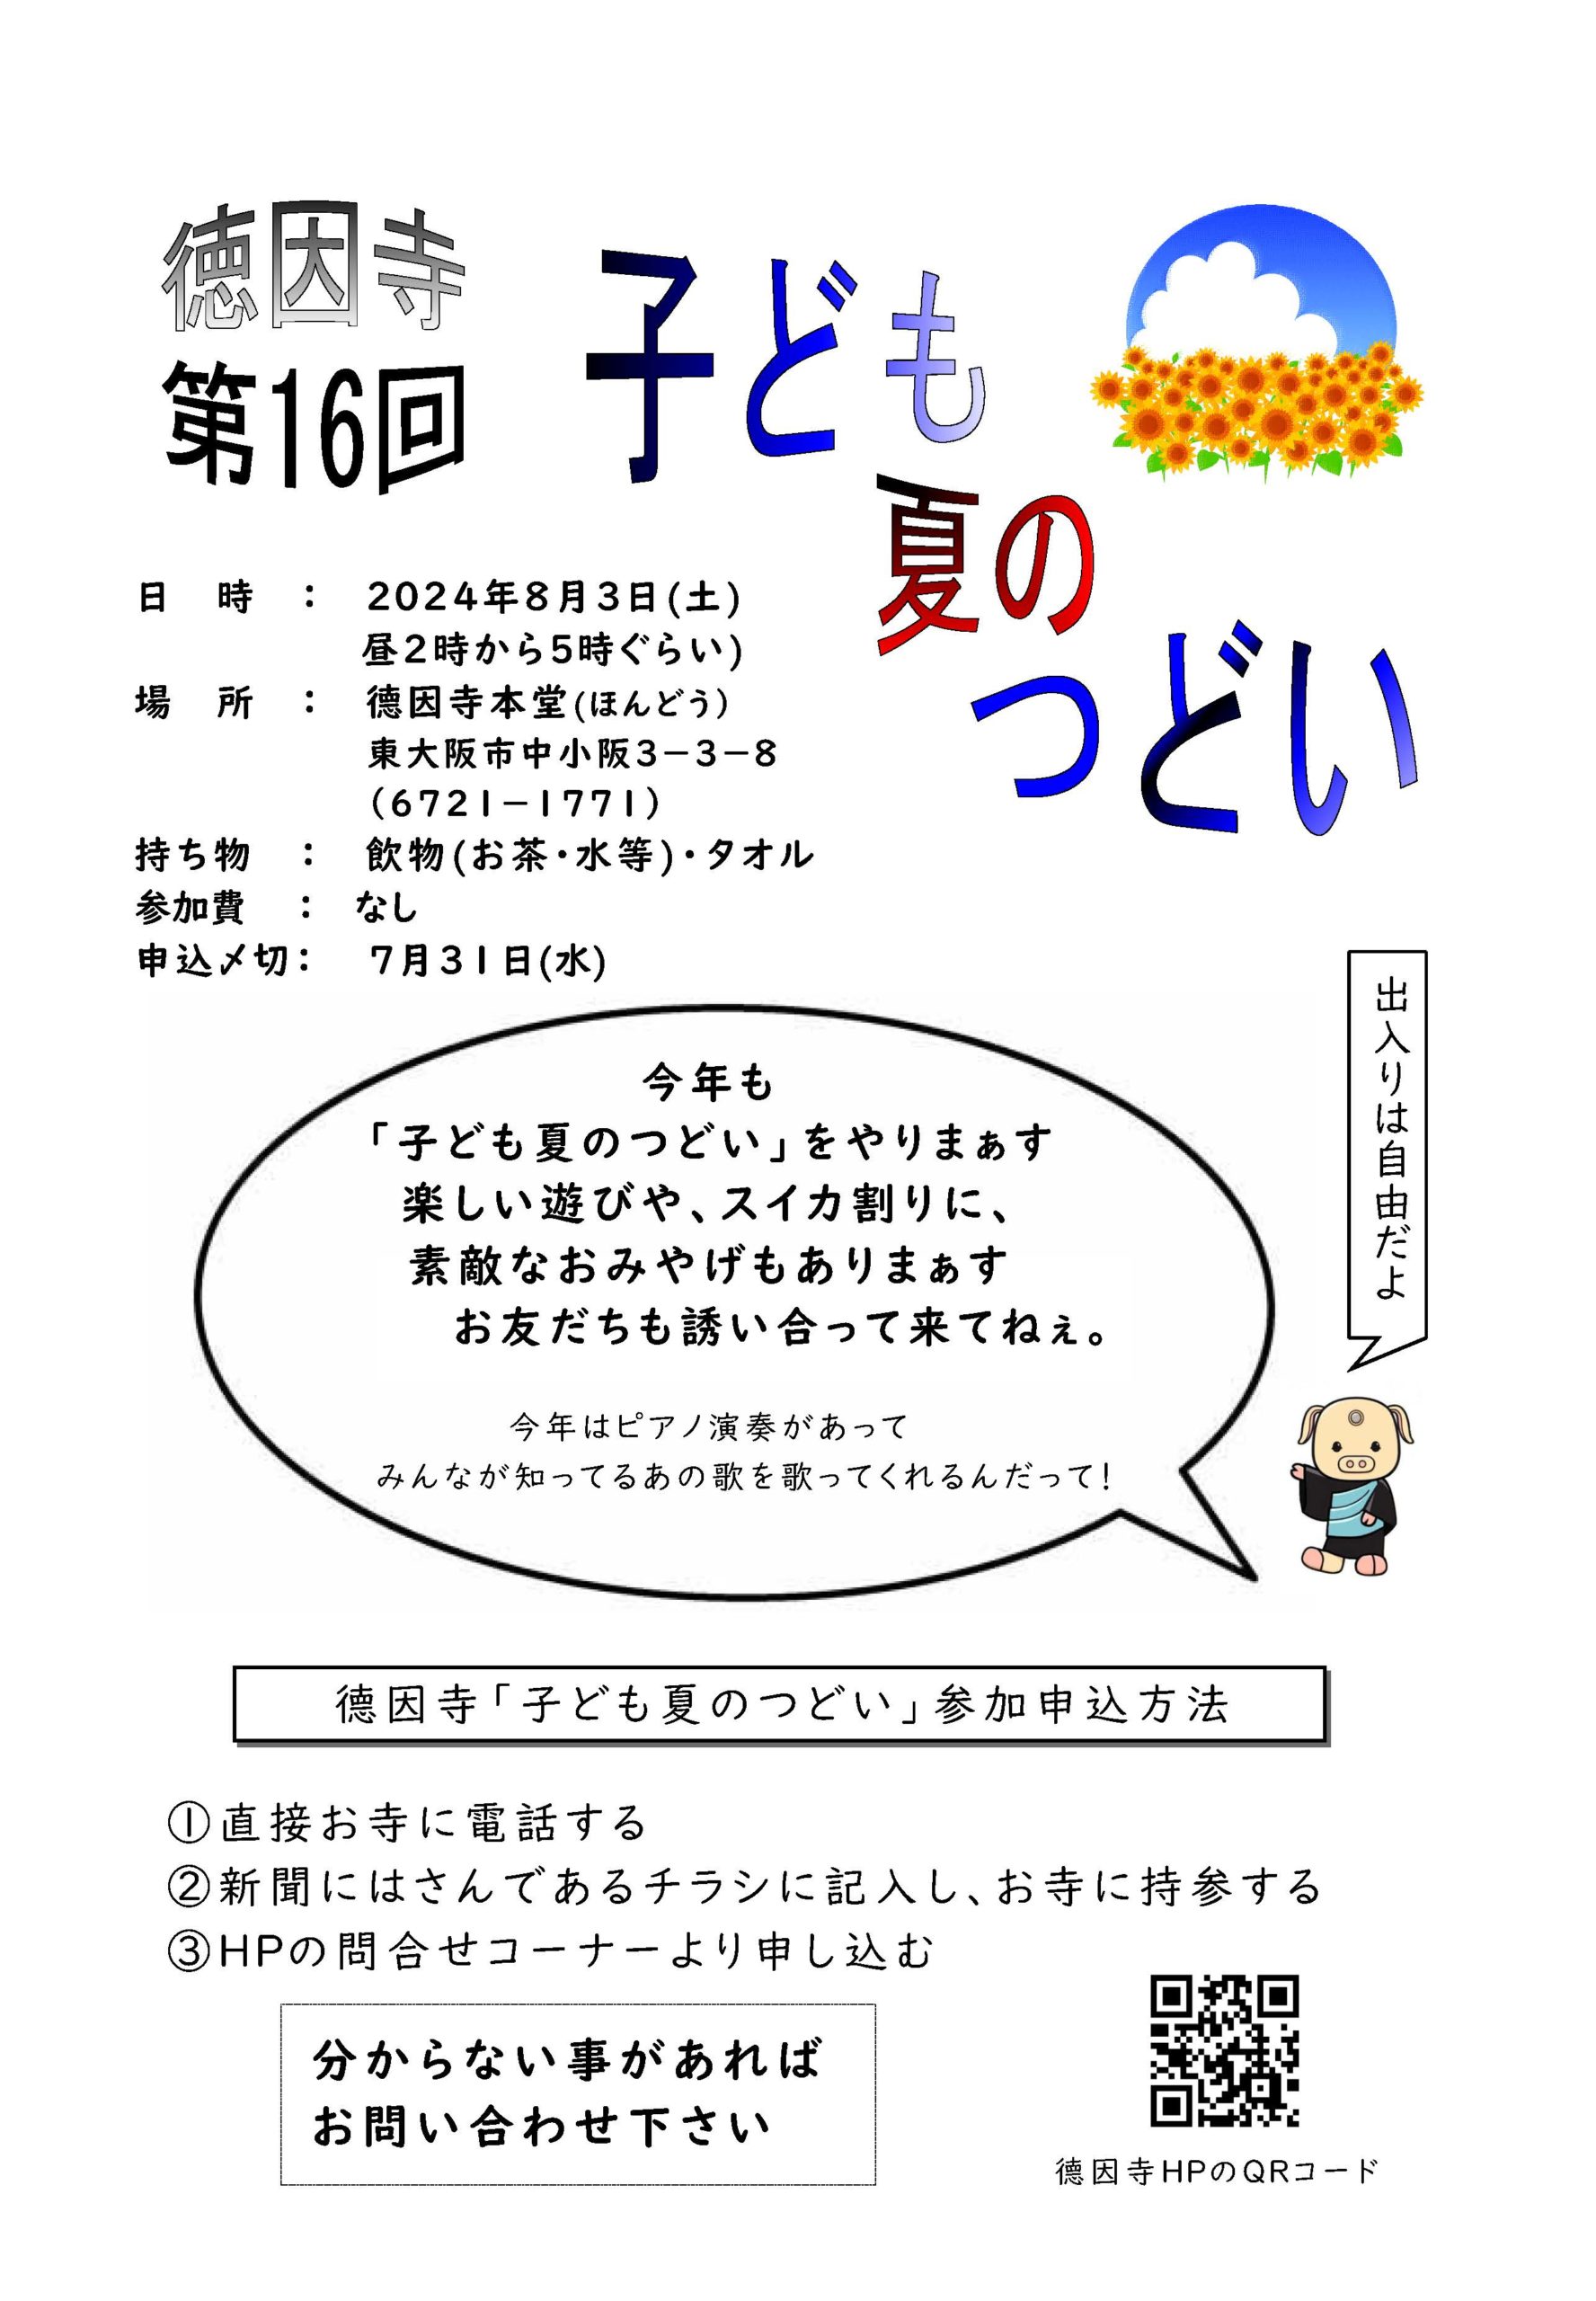 徳因寺
第16回
子ども
夏の
つどい
日　時　：　2024年8月3日(土)
昼2時から5時ぐらい)
場　所　：　德因寺本堂(ほんどう)
東大阪市中小阪3－3－8
(6721－1771)
持ち物　：　飲物(お茶・水等)・タオル
参加費　：　なし
申込〆切：　7月31日(水)
出入りは自由だよ
今年も
「子ども夏のつどい」をやりまぁす
楽しい遊びや、スイカ割りに、
素敵なおみやげもありまぁす
お友だちも誘い合って来てねぇ。
今年はピアノ演奏があって
みんなが知ってるあの歌を歌ってくれるんだって！
德因寺「子ども夏のつどい」参加申込方法
①直接お寺に電話する
②新聞にはさんであるチラシに記入し、お寺に持参する
③HPの問合せコーナーより申し込む
分からない事があれば
お問い合わせ下さい
德因寺HPのQRコード